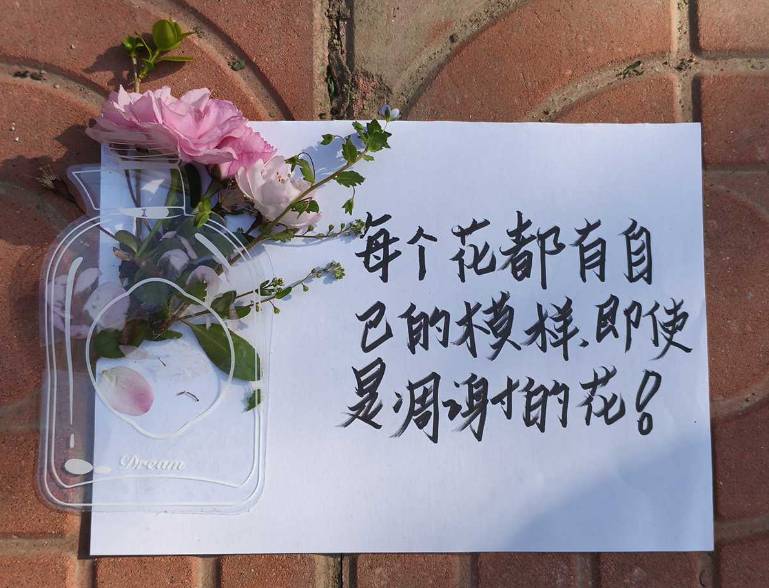 每个花都有自
己的模样、即使
是凋谢的花!
Dream